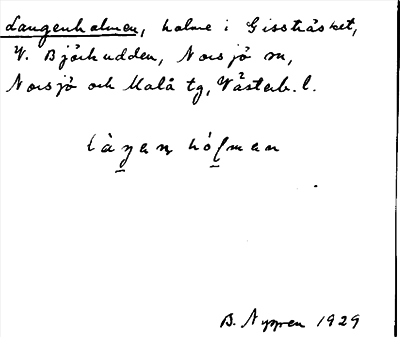 Langenholmen, holme i Gissträsket,
V. Björkudden, Norsjö sn,
Norsjö och Malå tg, Västerb. l.
làŋen hólman
B. Nygren 1929